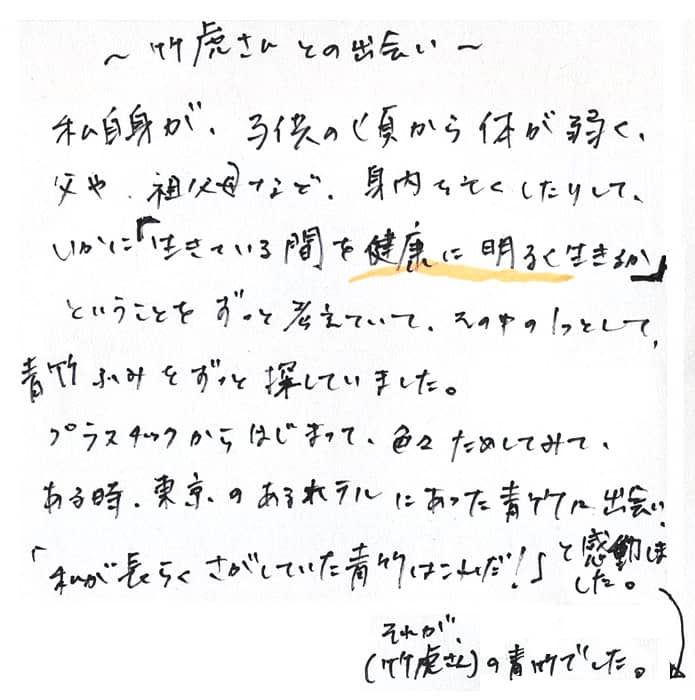 ～竹虎さんとの出会い～
私自身が、子供の頃から体が弱く、
父や、祖父母など、身内を亡くしたりして、
いかに「生きている間を健康に明るく生きるか」
ということをずっと考えていて、その中の1つとして、
青竹ふみをずっと探していました。
プラスチックからはじまって、色々ためしてみて、
ある時、東京のあるホテルにあった青竹に出会い、
「私が長らくさがしていた青竹はこれだ!」と感動しま
した。
それが、
(竹虎さん)の青竹でした。